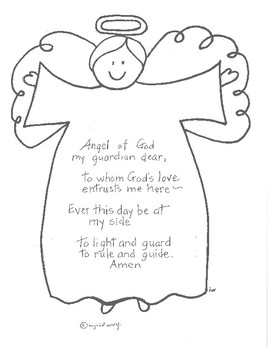 Angel of God
my guardian dear,
to whom God's love
entrusts me here~
Ever this day be at
my side
to light and guard
to rule and guide.
Amen
©